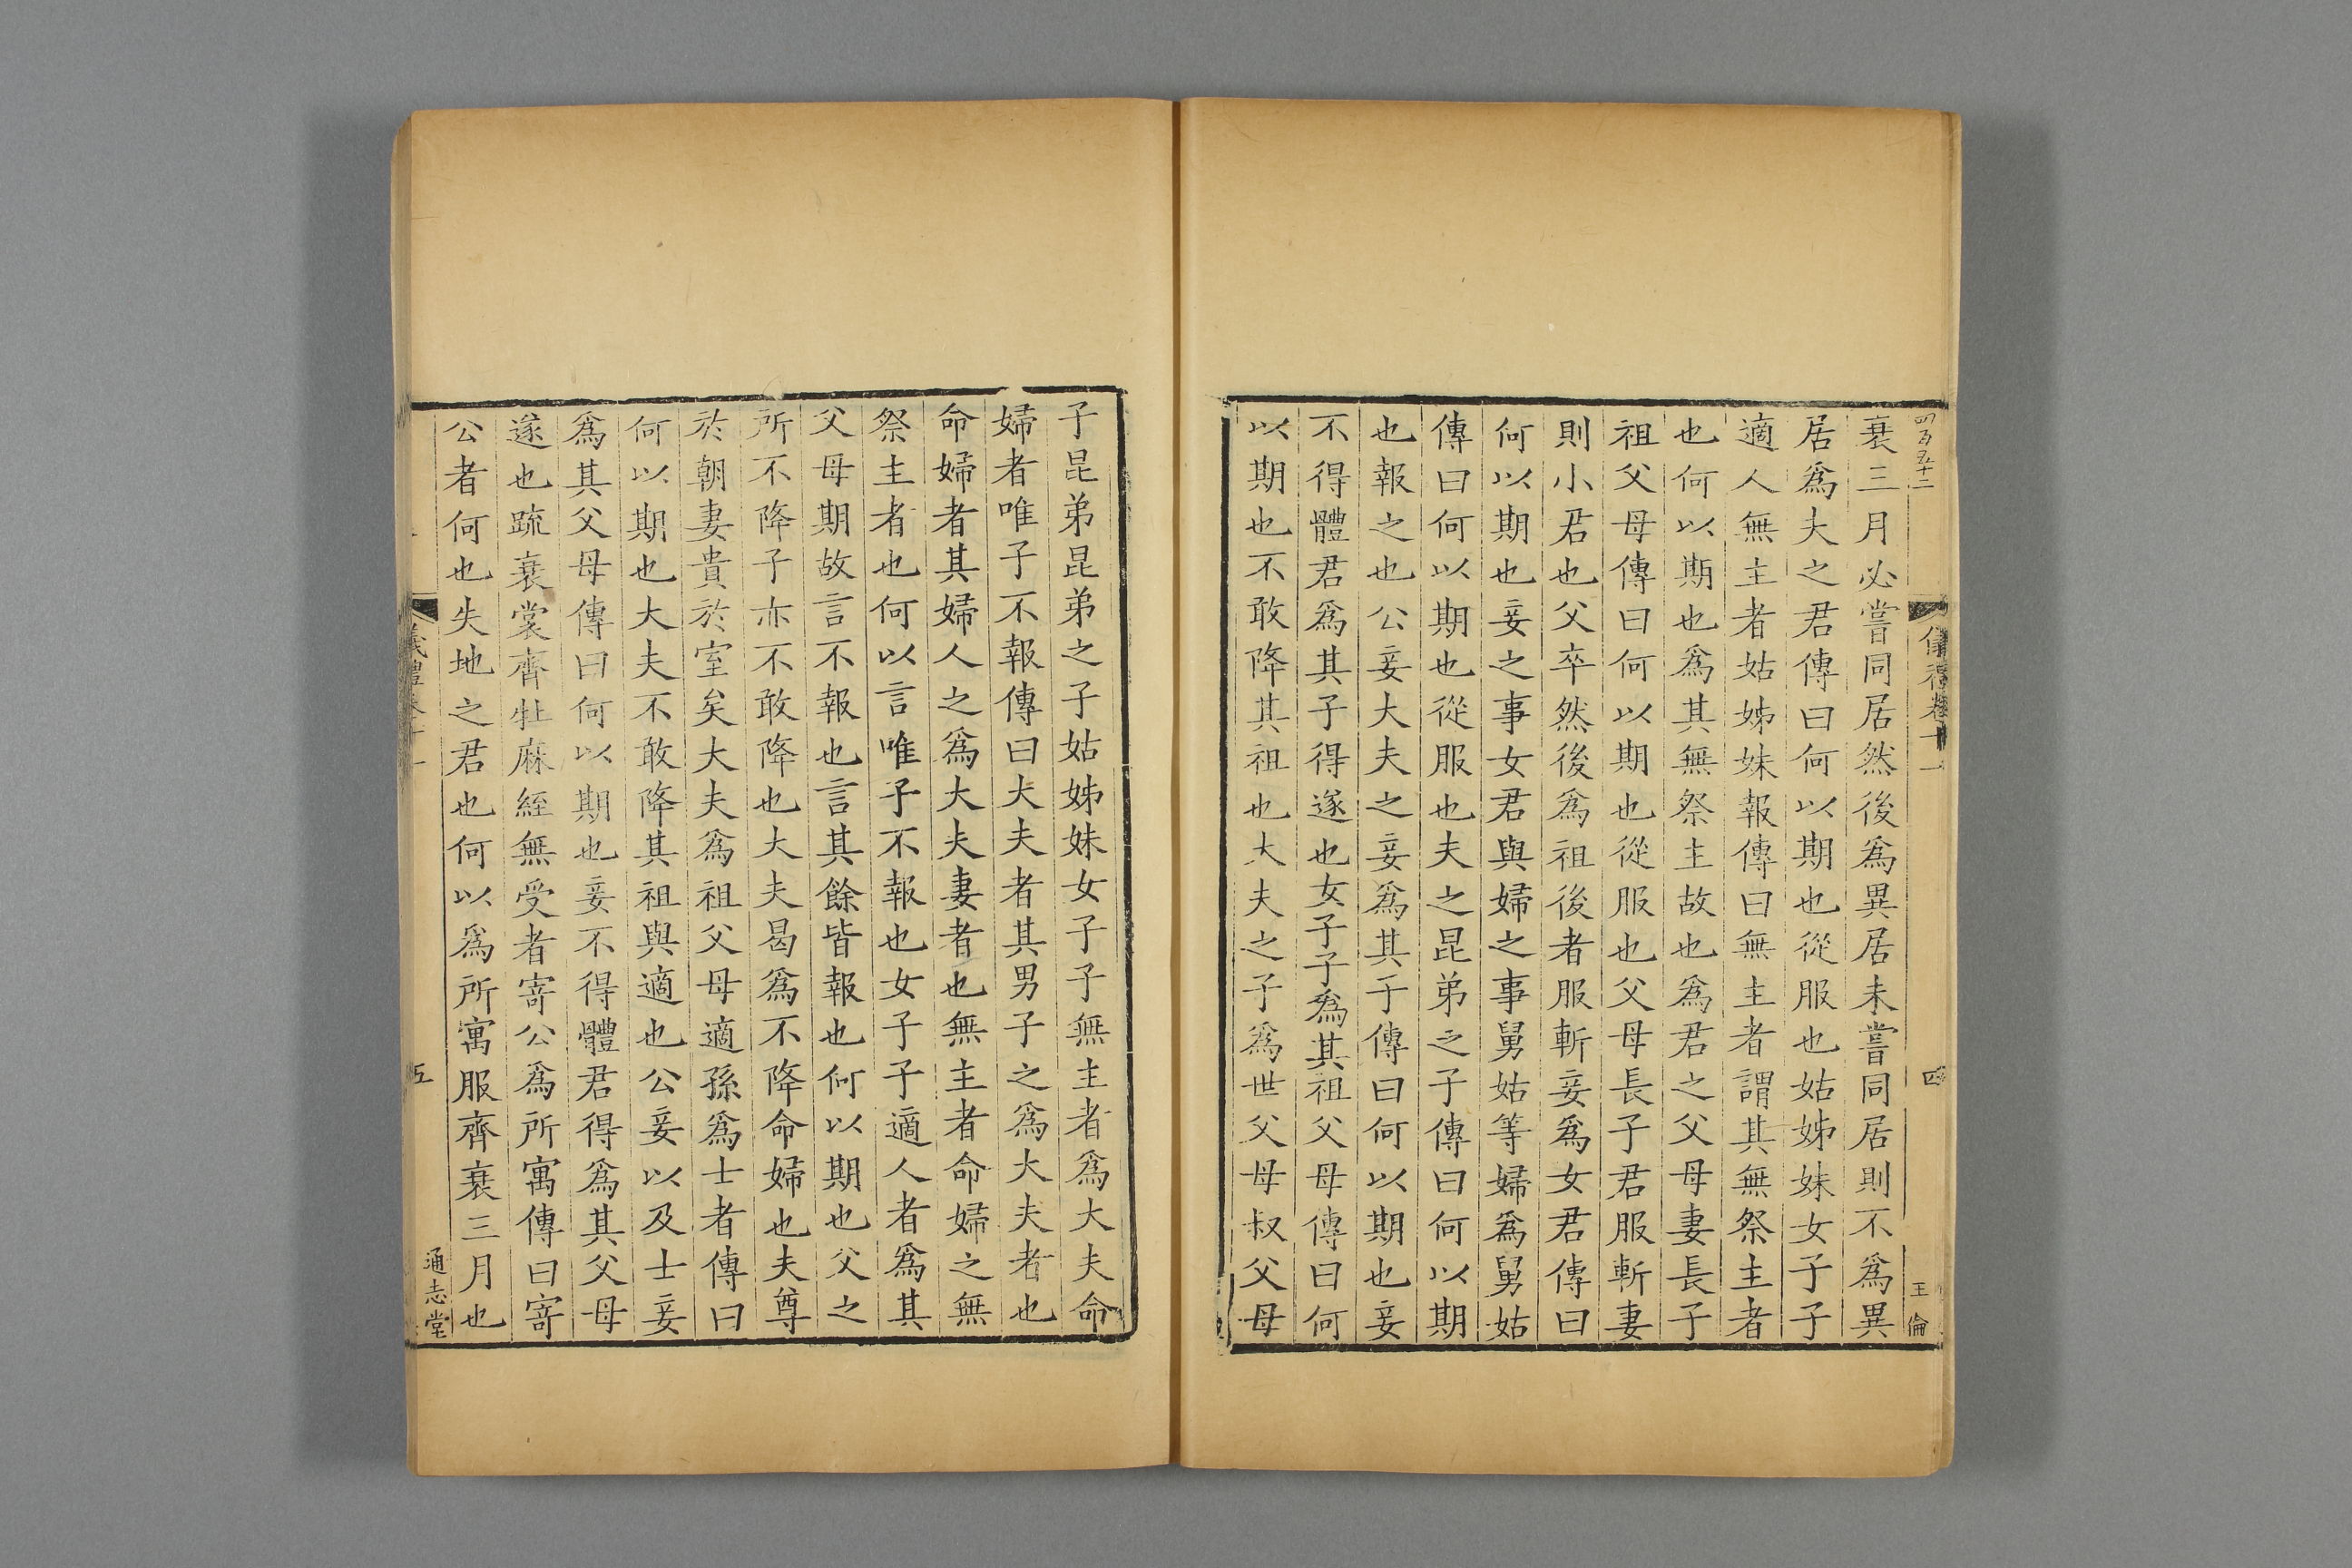 四百五十二
儀禮卷十一
四
王倫
衰三月必嘗同居然後爲異居未嘗同居則不爲異
居爲夫之君傳曰何以期也從服也姑姊妹女子子
適人無主者姑姊妹報傳曰無主者謂其無祭主者
也何以期也爲其無祭主故也爲君之父母妻長子
祖父母傳曰何以期也從服也父母長子君服斬妻
則小君也父卒然後爲祖後者服斬妾爲女君傳曰
何以期也妾之事女君與婦之事舅姑等婦爲舅姑
傳曰何以期也從服也夫之昆弟之子傳曰何以期
也報之也公妾大夫之妾爲其子傳曰何以期也妾
不得體君爲其子得遂也女子子爲其祖父母傳曰何
以期也不敢降其祖也大夫之子爲世父母叔父母
子昆弟昆弟之子姑姊妹女子子無主者爲大夫命
婦者唯子不報傳曰大夫者其男子之爲大夫者也
命婦者其婦人之爲大夫妻者也無主者命婦之無
祭主者也何以言唯子不報也女子子適人者爲其
父母期故言不報也言其餘皆報也何以期也父之
所不降子亦不敢降也大夫曷爲不降命婦也夫尊
於朝妻貴於室矣大夫爲祖父母適孫爲士者傳曰
何以期也大夫不敢降其祖與適也公妾以及士妾
爲其父母傳曰何以期也妾不得體君得爲其父母
遂也疏衰裳齊牡麻絰無受者寄公爲所寓傳曰寄
公者何也失地之君也何以爲所寓服齊衰三月也
儀禮卷十一
五
通志堂